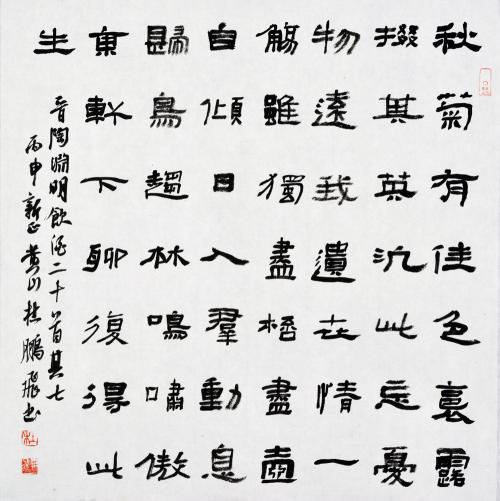 秋菊有佳色裛露
掇其英汎此忘憂
物遠我遺世情一
觴雖獨盡桮盡壺
自傾日入羣動息
歸鳥趨林鳴嘯傲
東軒下聊復得此
生
晉陶淵明飲酒二十首其七
丙申新正黄山杜鵬飛書